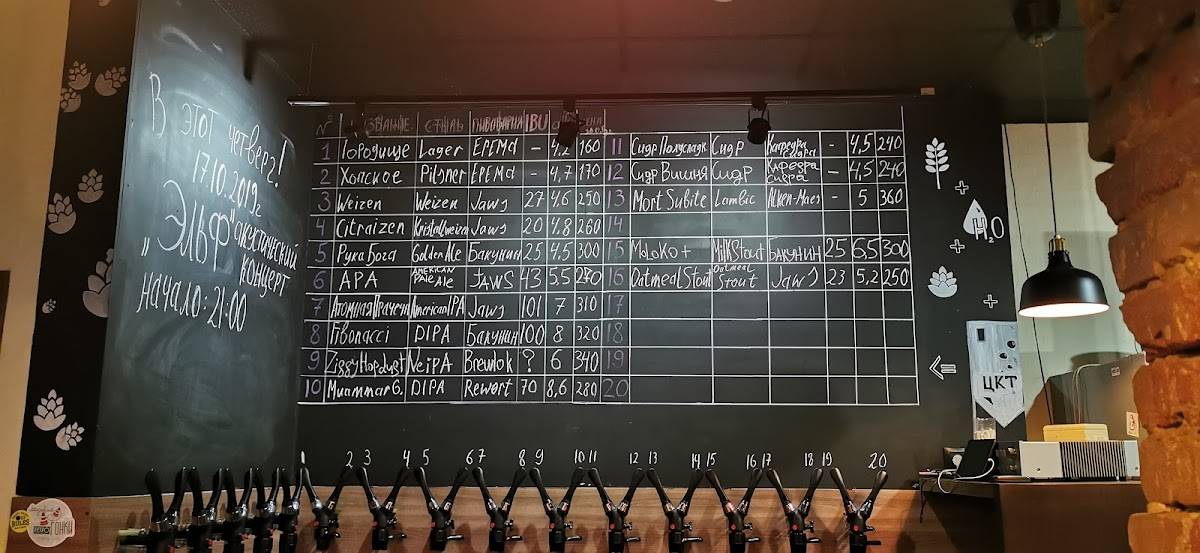 В этот четверг!
17.10.2019г
„ЭЛЬФ" акустический
концерт
начало: 21:00
№ НАЗВАНИЕ СТИЛЬ ПИВОВАРНЯ IBU
1 Городище Lager ЕРЕМА - 4,2 160
2 Хопское Pilsner ЕРЕМА - 4,7 170
3 Weizen Weizen Jaws 27 4,6 250
4 Citraizen Kristallweizen Jaws 20 4,8 260
5 Рука Бога GoldenAle Бакунин 25 4,5 300
6 APA AMERICAN PALE ALE JAWS 43 5.5 270
7 Атомная Прачечная American IPA Jaws 101 7 310
8 Fibonacci DIPA Бакунин 100 8 320
9 Ziggy Hopdust NeiPA Brewlok ? 6 340
10 Muammar G. DIPA Rewort 70 8,6 280
11 Сидр Полусладк Сидр Кафедра сидра - 4,5 240
12 Сидр Вишня Сидр Кафедра сидра - 4,5 240
13 Mort Subite Lambic Alken-Maes - 5 360
14
15 MoLoKo+ MilkStout Бакунин 25 6,5 300
16 Oatmeal Stout Oatmeal Stout Jaws 23 5,2 250
17
18
19
20
H₂O
ЦКТ
1 2 3 4 5 6 7 8 9 10 11 12 13 14 15 16 17 18 19 20
RULES
ГОНКИ